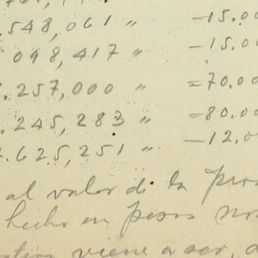 .548,061 " -15.00
098,417 " -15.0
.257,000 " =70.00
.245,283 " =80.00
2.625,251 " -12.0
al valor de la pro
hecho en pesos
viene a ser,